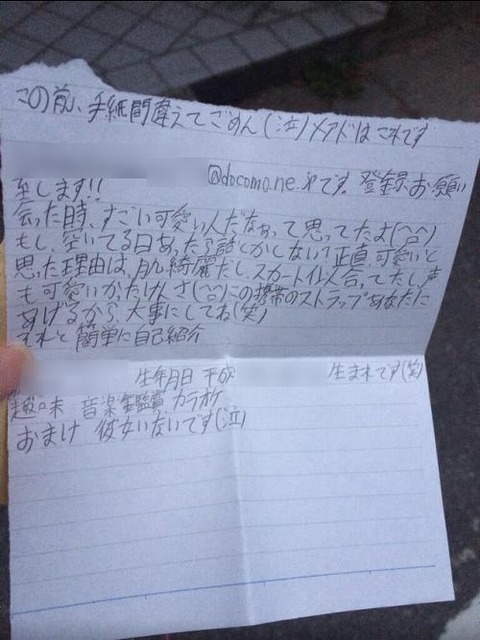 この前、手紙間違えてごめん(泣)メアドはこれです
@docomo.ne.jpです。登録お願い
至します!!
会った時、すごい可愛い人だなぁって思ってたよ(^^)
もし、空いてる日あったら話しとかしない?正直、可愛いと
思った理由は、肌綺麗だし、スカート似合ってたし、声
も可愛いかったけんさ(^^)この携帯のストラップあなたに
あげるから大事にしてね(笑)
それと簡単に自己紹介
生年月日 平成 生まれです(笑)
趣味 音楽鑑賞 カラオケ
おまけ 彼女いないです(泣)